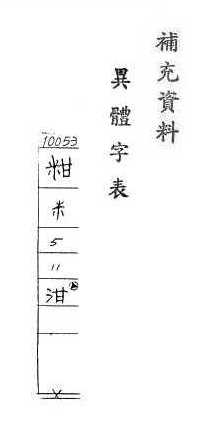 補充資料
異體字表
10053
粓
米
5
11
泔